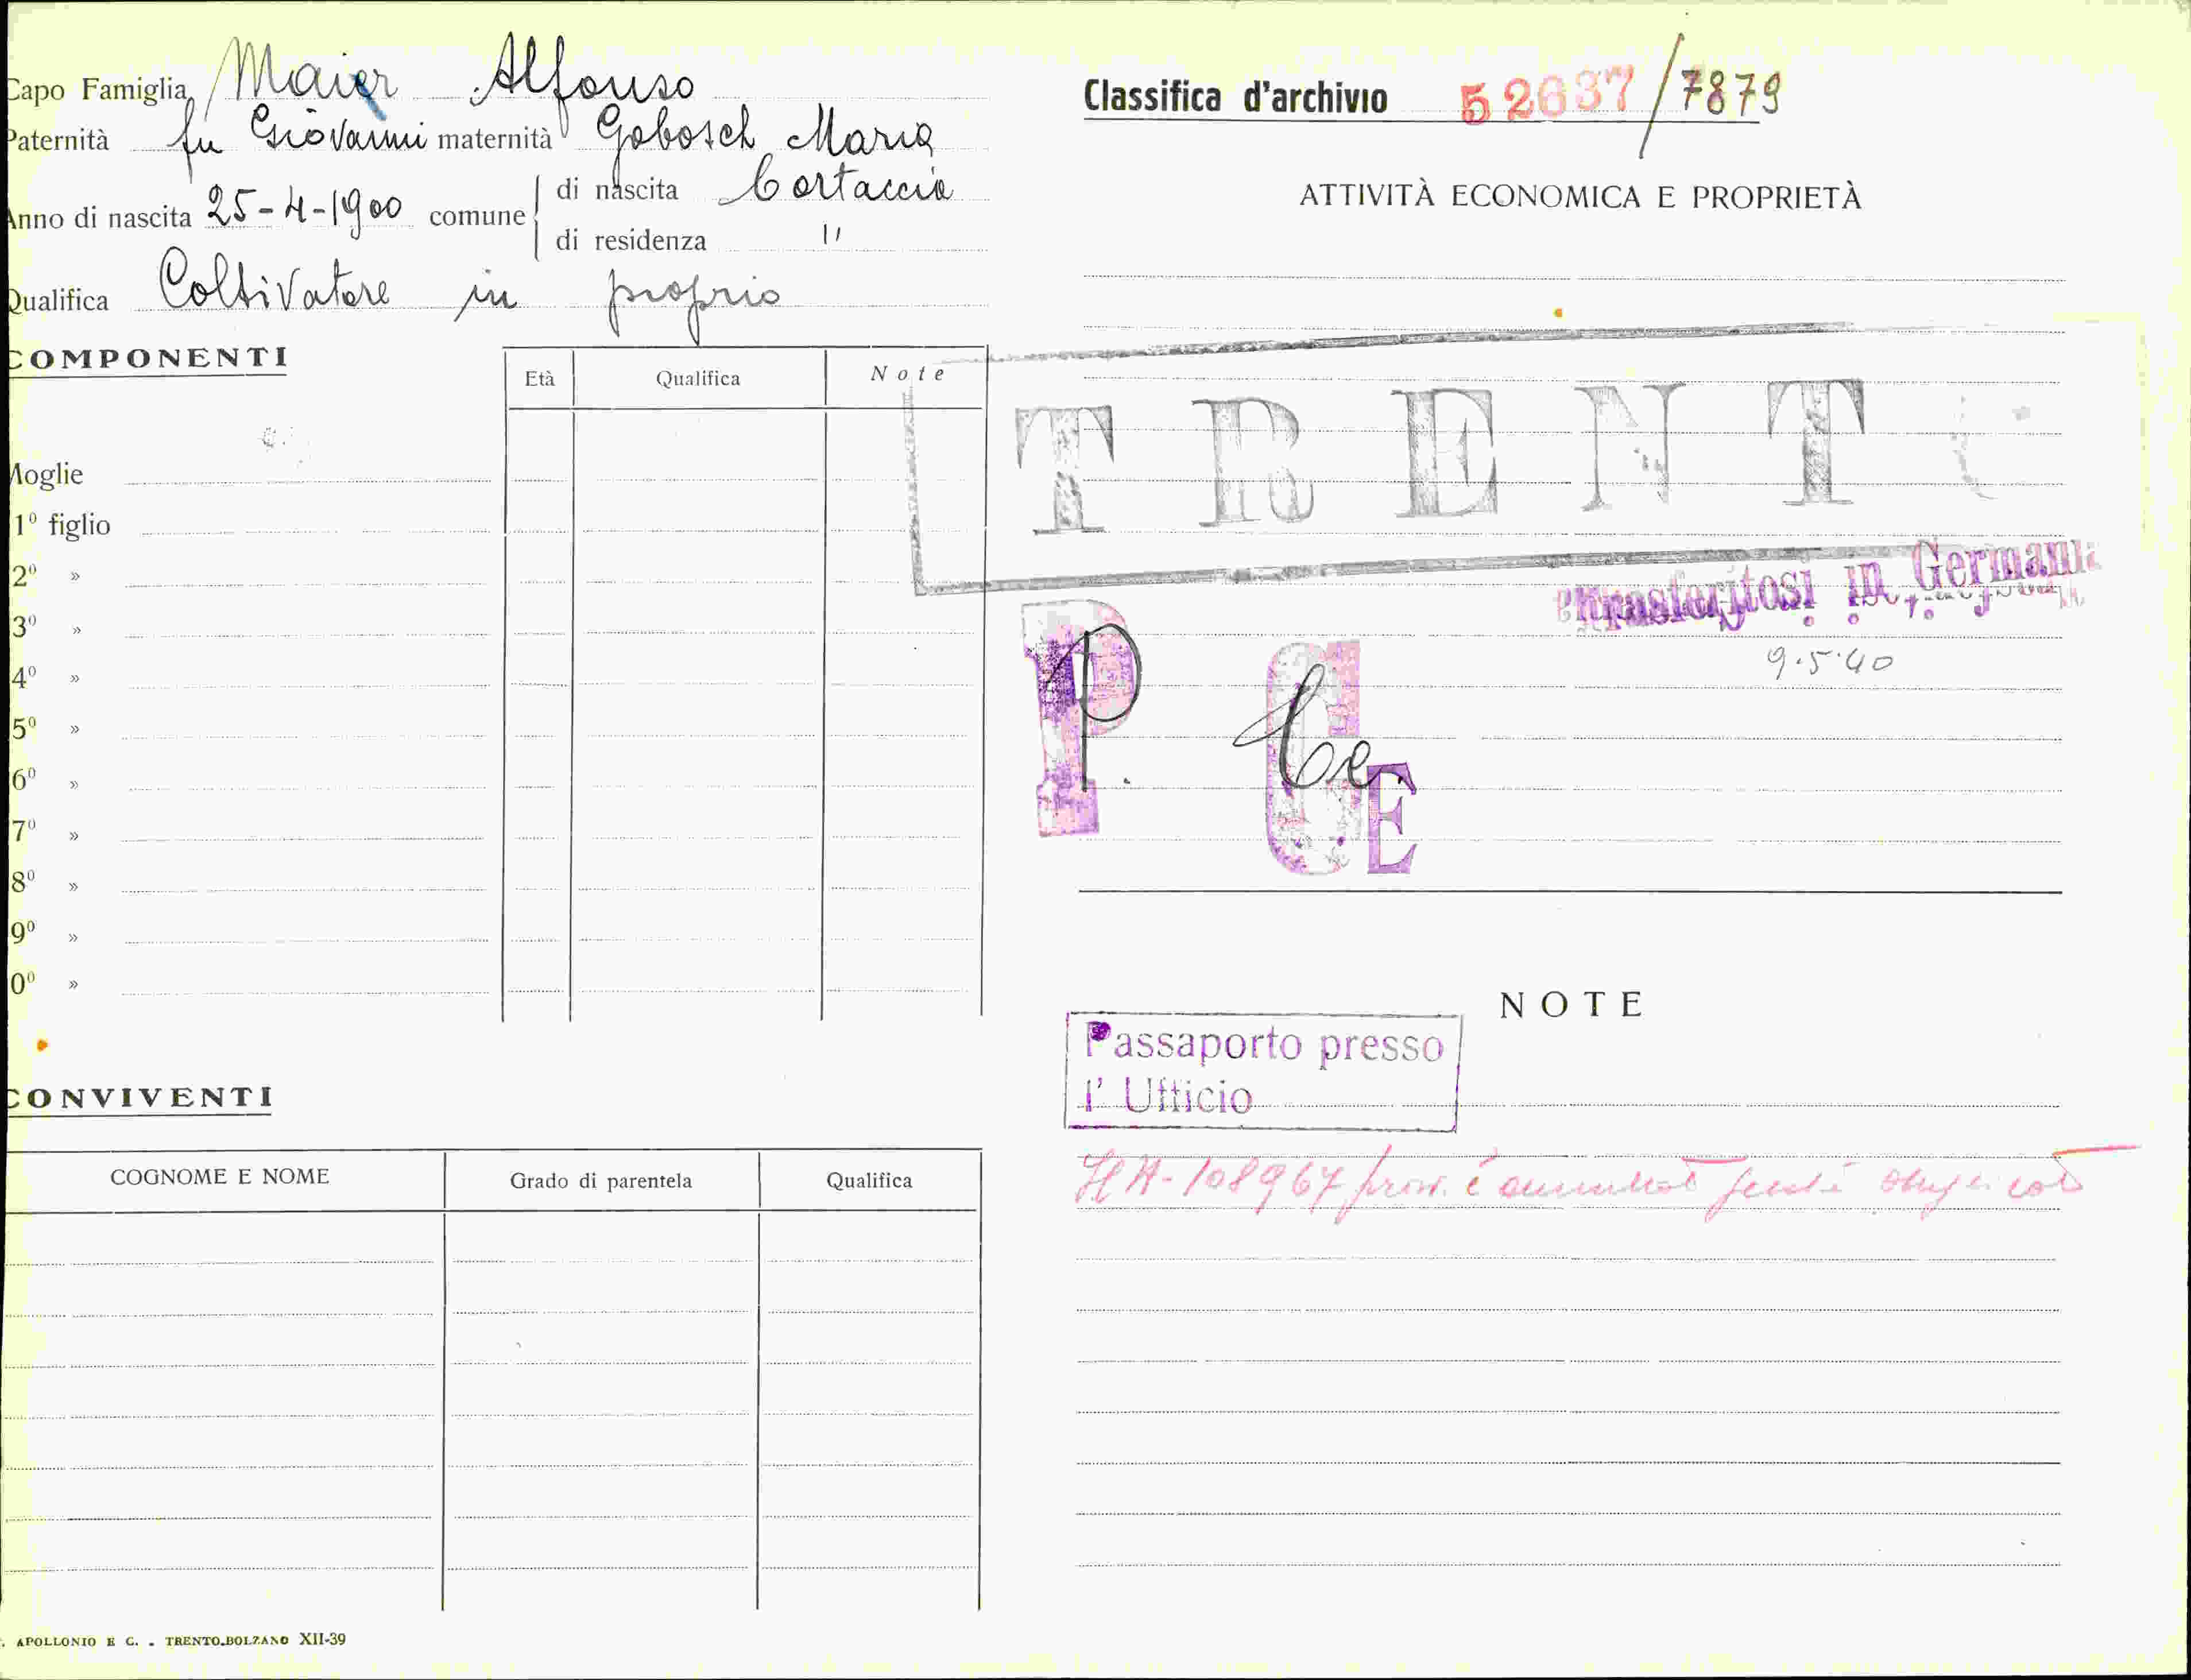 Capo Famiglia Maier Alfonso
Paternità fu Giovanni maternità Gobosch Maria
Anno di nascita 25-4-1900 comune di nascita Cortaccia
di residenza "
Qualifica Coltivatore in proprio
COMPONENTI
Età Qualifica Note
Moglie
1º figlio
2º »
3º »
4º »
5º »
6º »
7º »
8º »
9º »
0º »
CONVIVENTI
COGNOME E NOME Grado di parentela Qualifica
. APOLLONIO E C. - TRENTO-BOLZANO XII-39
Classifica d'archivio 52637/7879
ATTIVITÀ ECONOMICA E PROPRIETÀ
TRENTO
trasferitosi in Germania
9.5.40
P. Ce
P C E
NOTE
Passaporto presso
l'Ufficio
HA-108967 è